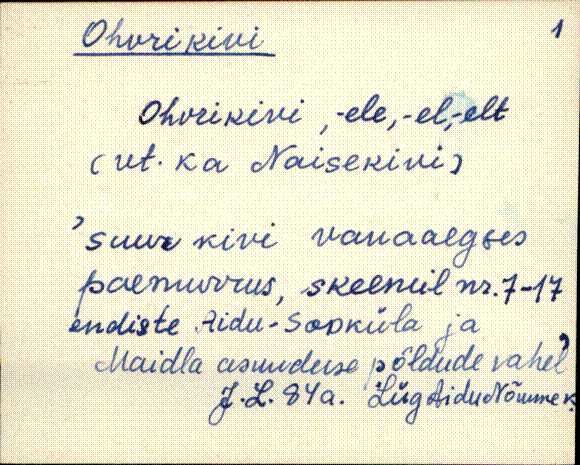 Ohvrikivi 1
Ohvrikivi, -ele, -el, -elt
(vt. ka Naisekivi)
'suur kivi vanaaegses
paemurrus, skeemil nr. 7-17
endiste Aidu-Sooküla ja
Maidla asunduse põldude vahel'
J. L. 84a. Lüg Aidu Nõmme k.